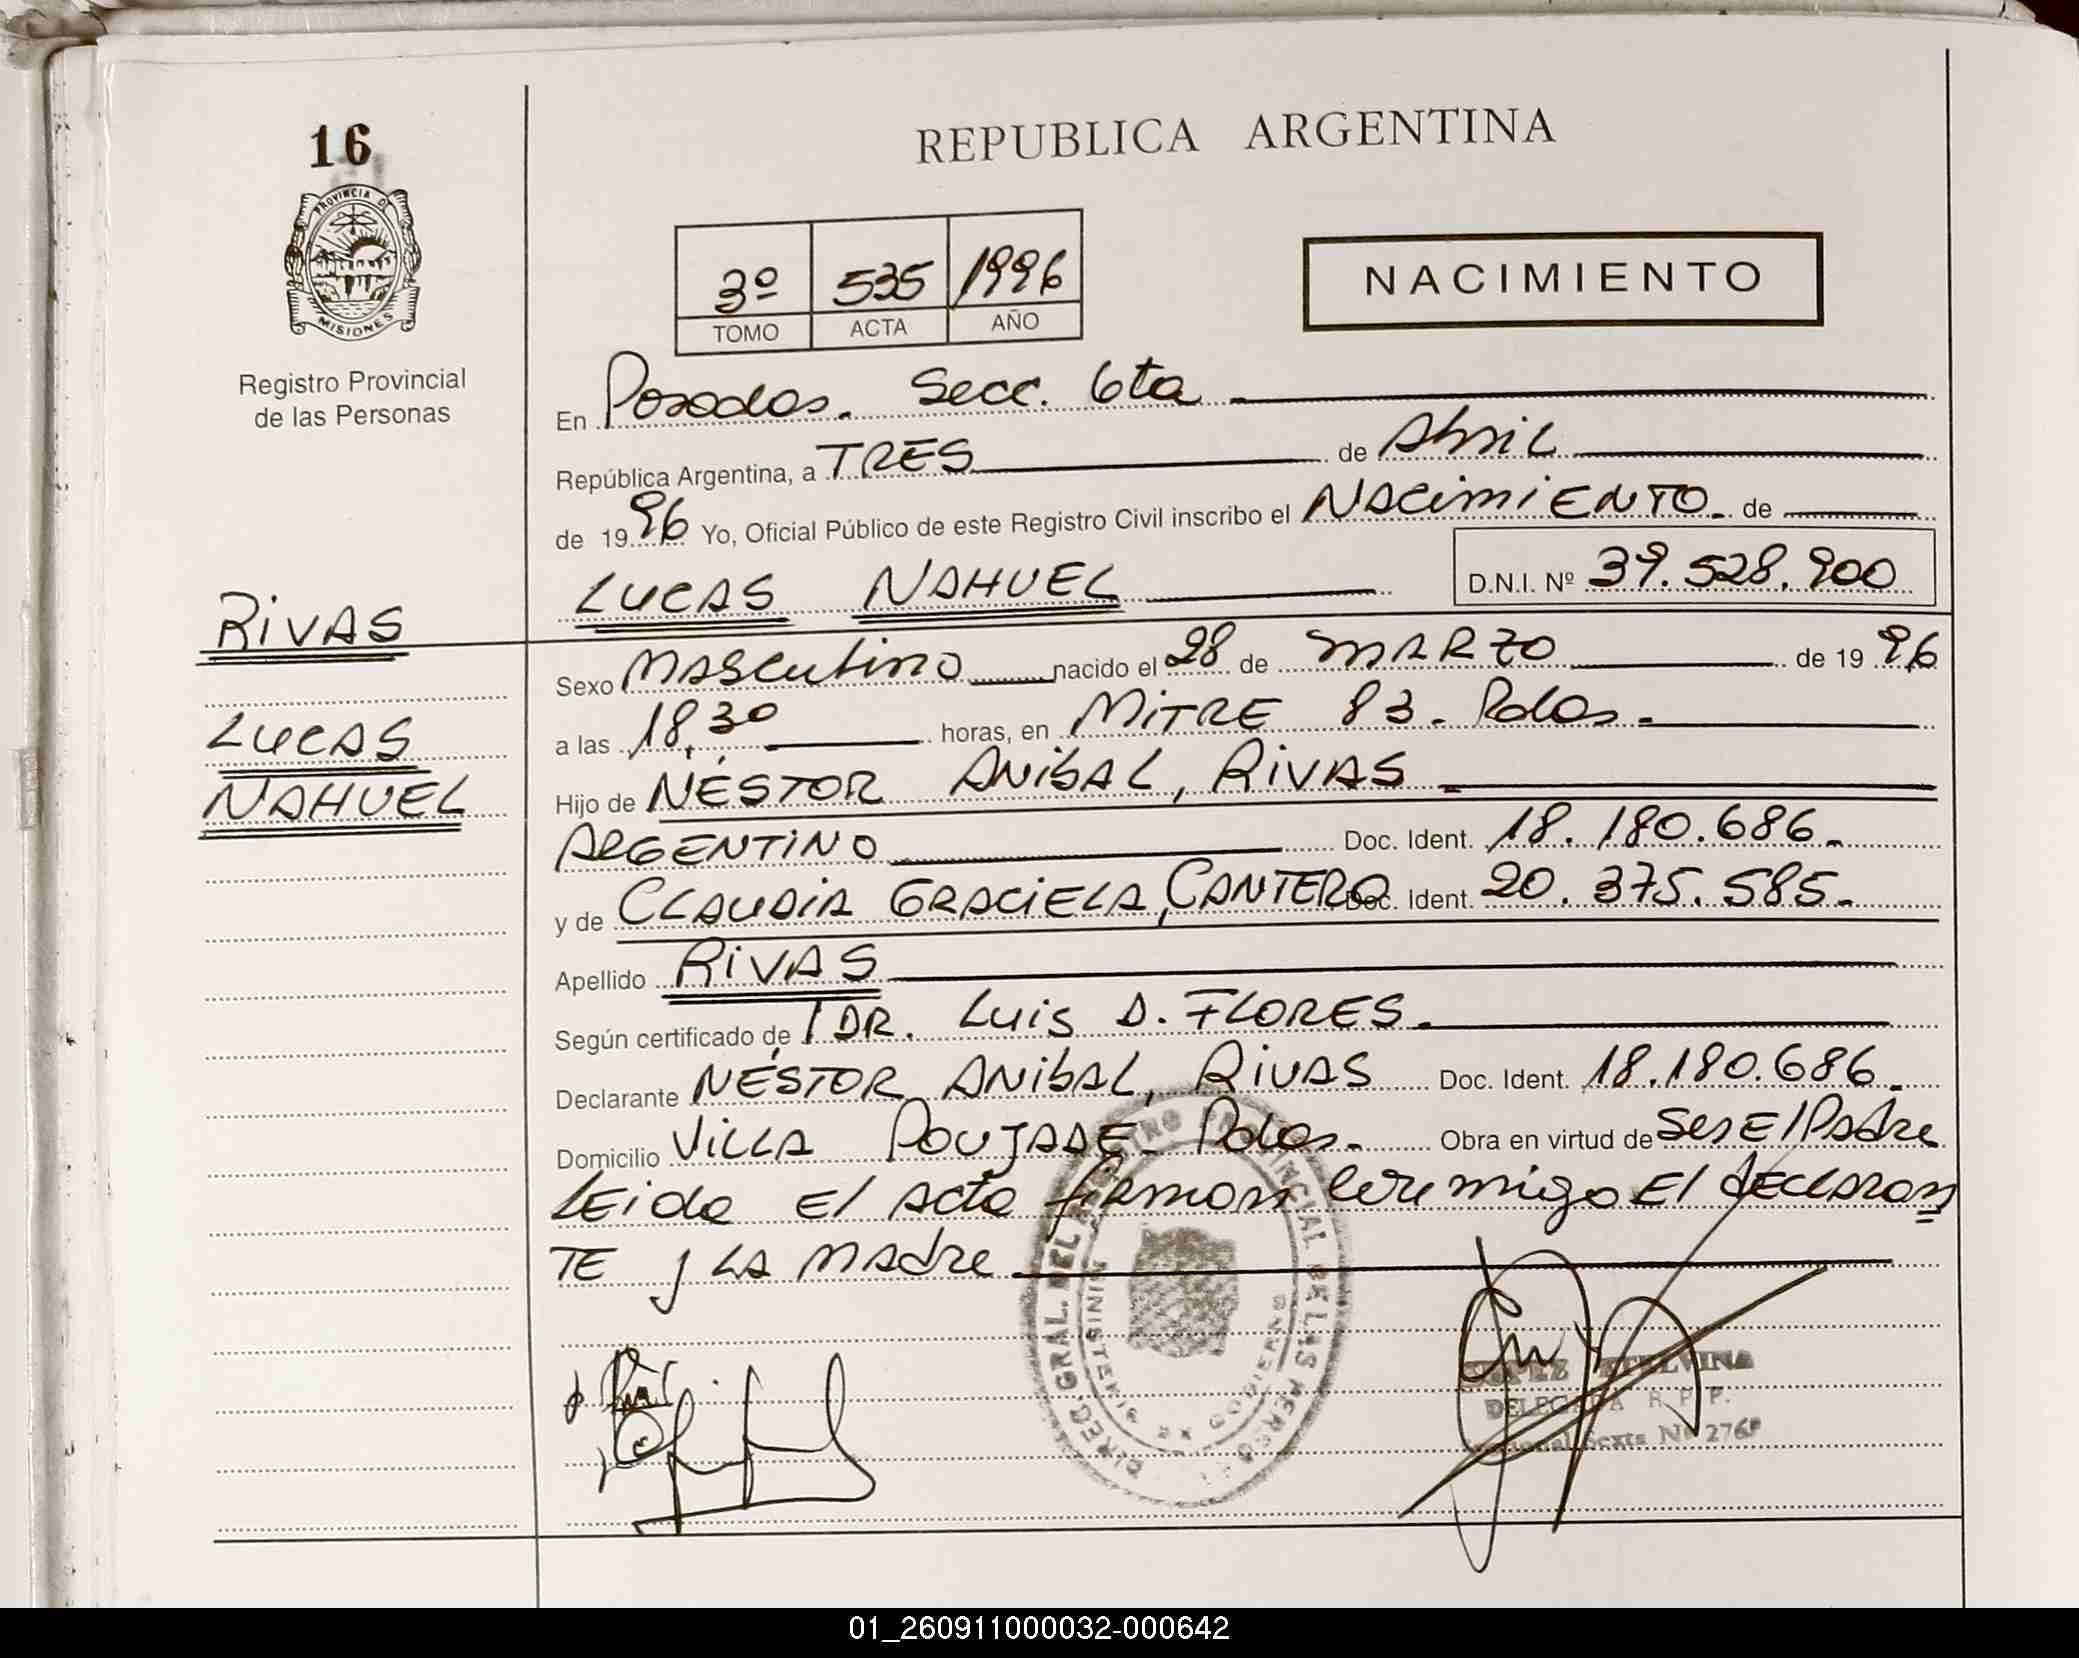 16
REPUBLICA ARGENTINA
PROVINCIA D
MISIONES
Registro Provincial
de las Personas
3º 535 1996
TOMO ACTA AÑO
NACIMIENTO
En Posadas. Secc. 6ta
República Argentina, a TRES de Abril
de 1996 Yo, Oficial Público de este Registro Civil inscribo el NACIMIENTO. de
LUCAS NAHUEL D.N.I. Nº 39.528.900
RIVAS
LUCAS
NAHUEL
Sexo MASCULINO nacido el 28 de MARZO de 1996
a las 18,30 horas, en MITRE 83. Pdas.
Hijo de NÉSTOR ANIBAL, RIVAS
ARGENTINO Doc. Ident. 18.180.686.
y de CLAUDIA GRACIELA, CANTERO Doc. Ident. 20.375.585.
Apellido RIVAS
Según certificado de DR. Luis D. FLORES.
Declarante NÉSTOR ANIBAL, RIVAS Doc. Ident. 18.180.686.
Domicilio VILLA POUJADE Pdas. Obra en virtud de Ser El Padre
LEida El Acta firman conmigo El dECLARAN
TE y LA MAdre
DIREC. GRAL. DEL REGISTRO PROVINCIAL DE LAS PERSO
MINISTERI
GOBIERNO
TELVINA
DELEGADA R. P. P.
Sexta Nº 276
01_260911000032-000642